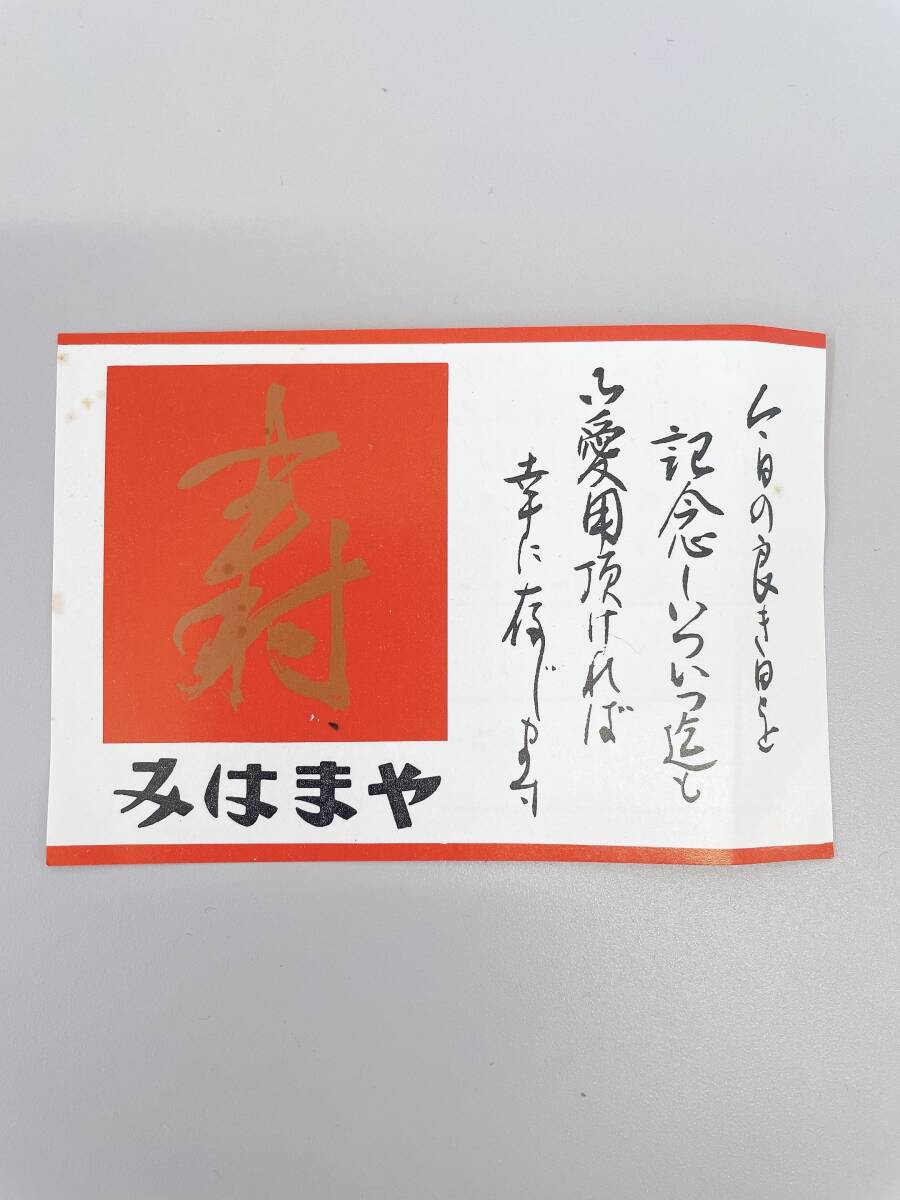 今日の良き日を
記念しいついつ迄も
御愛用頂ければ
幸に存じます
寿
みはまや